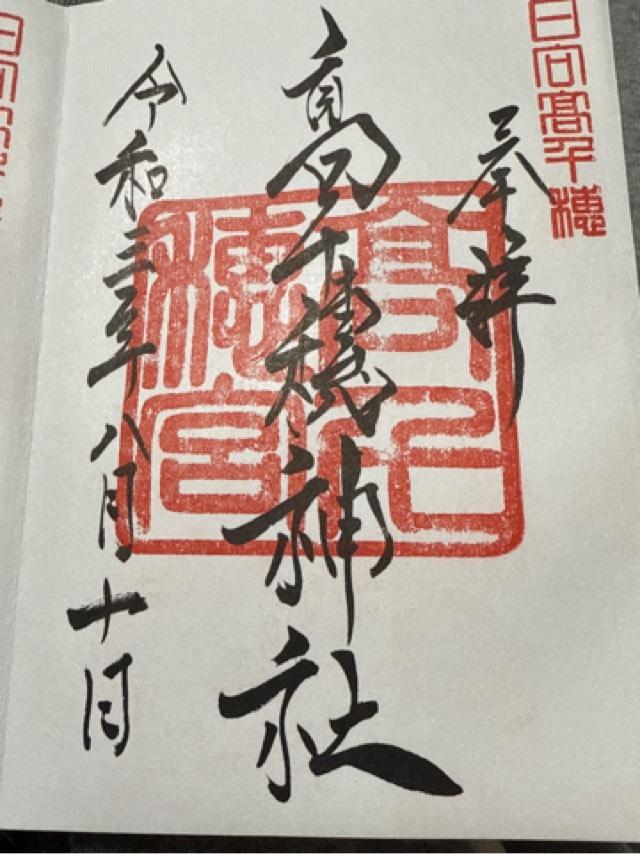 日向髙千穂
奉拝
高千穂神社
高千
穂宮
令和三年八月十日